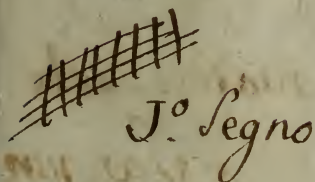 J.º Segno